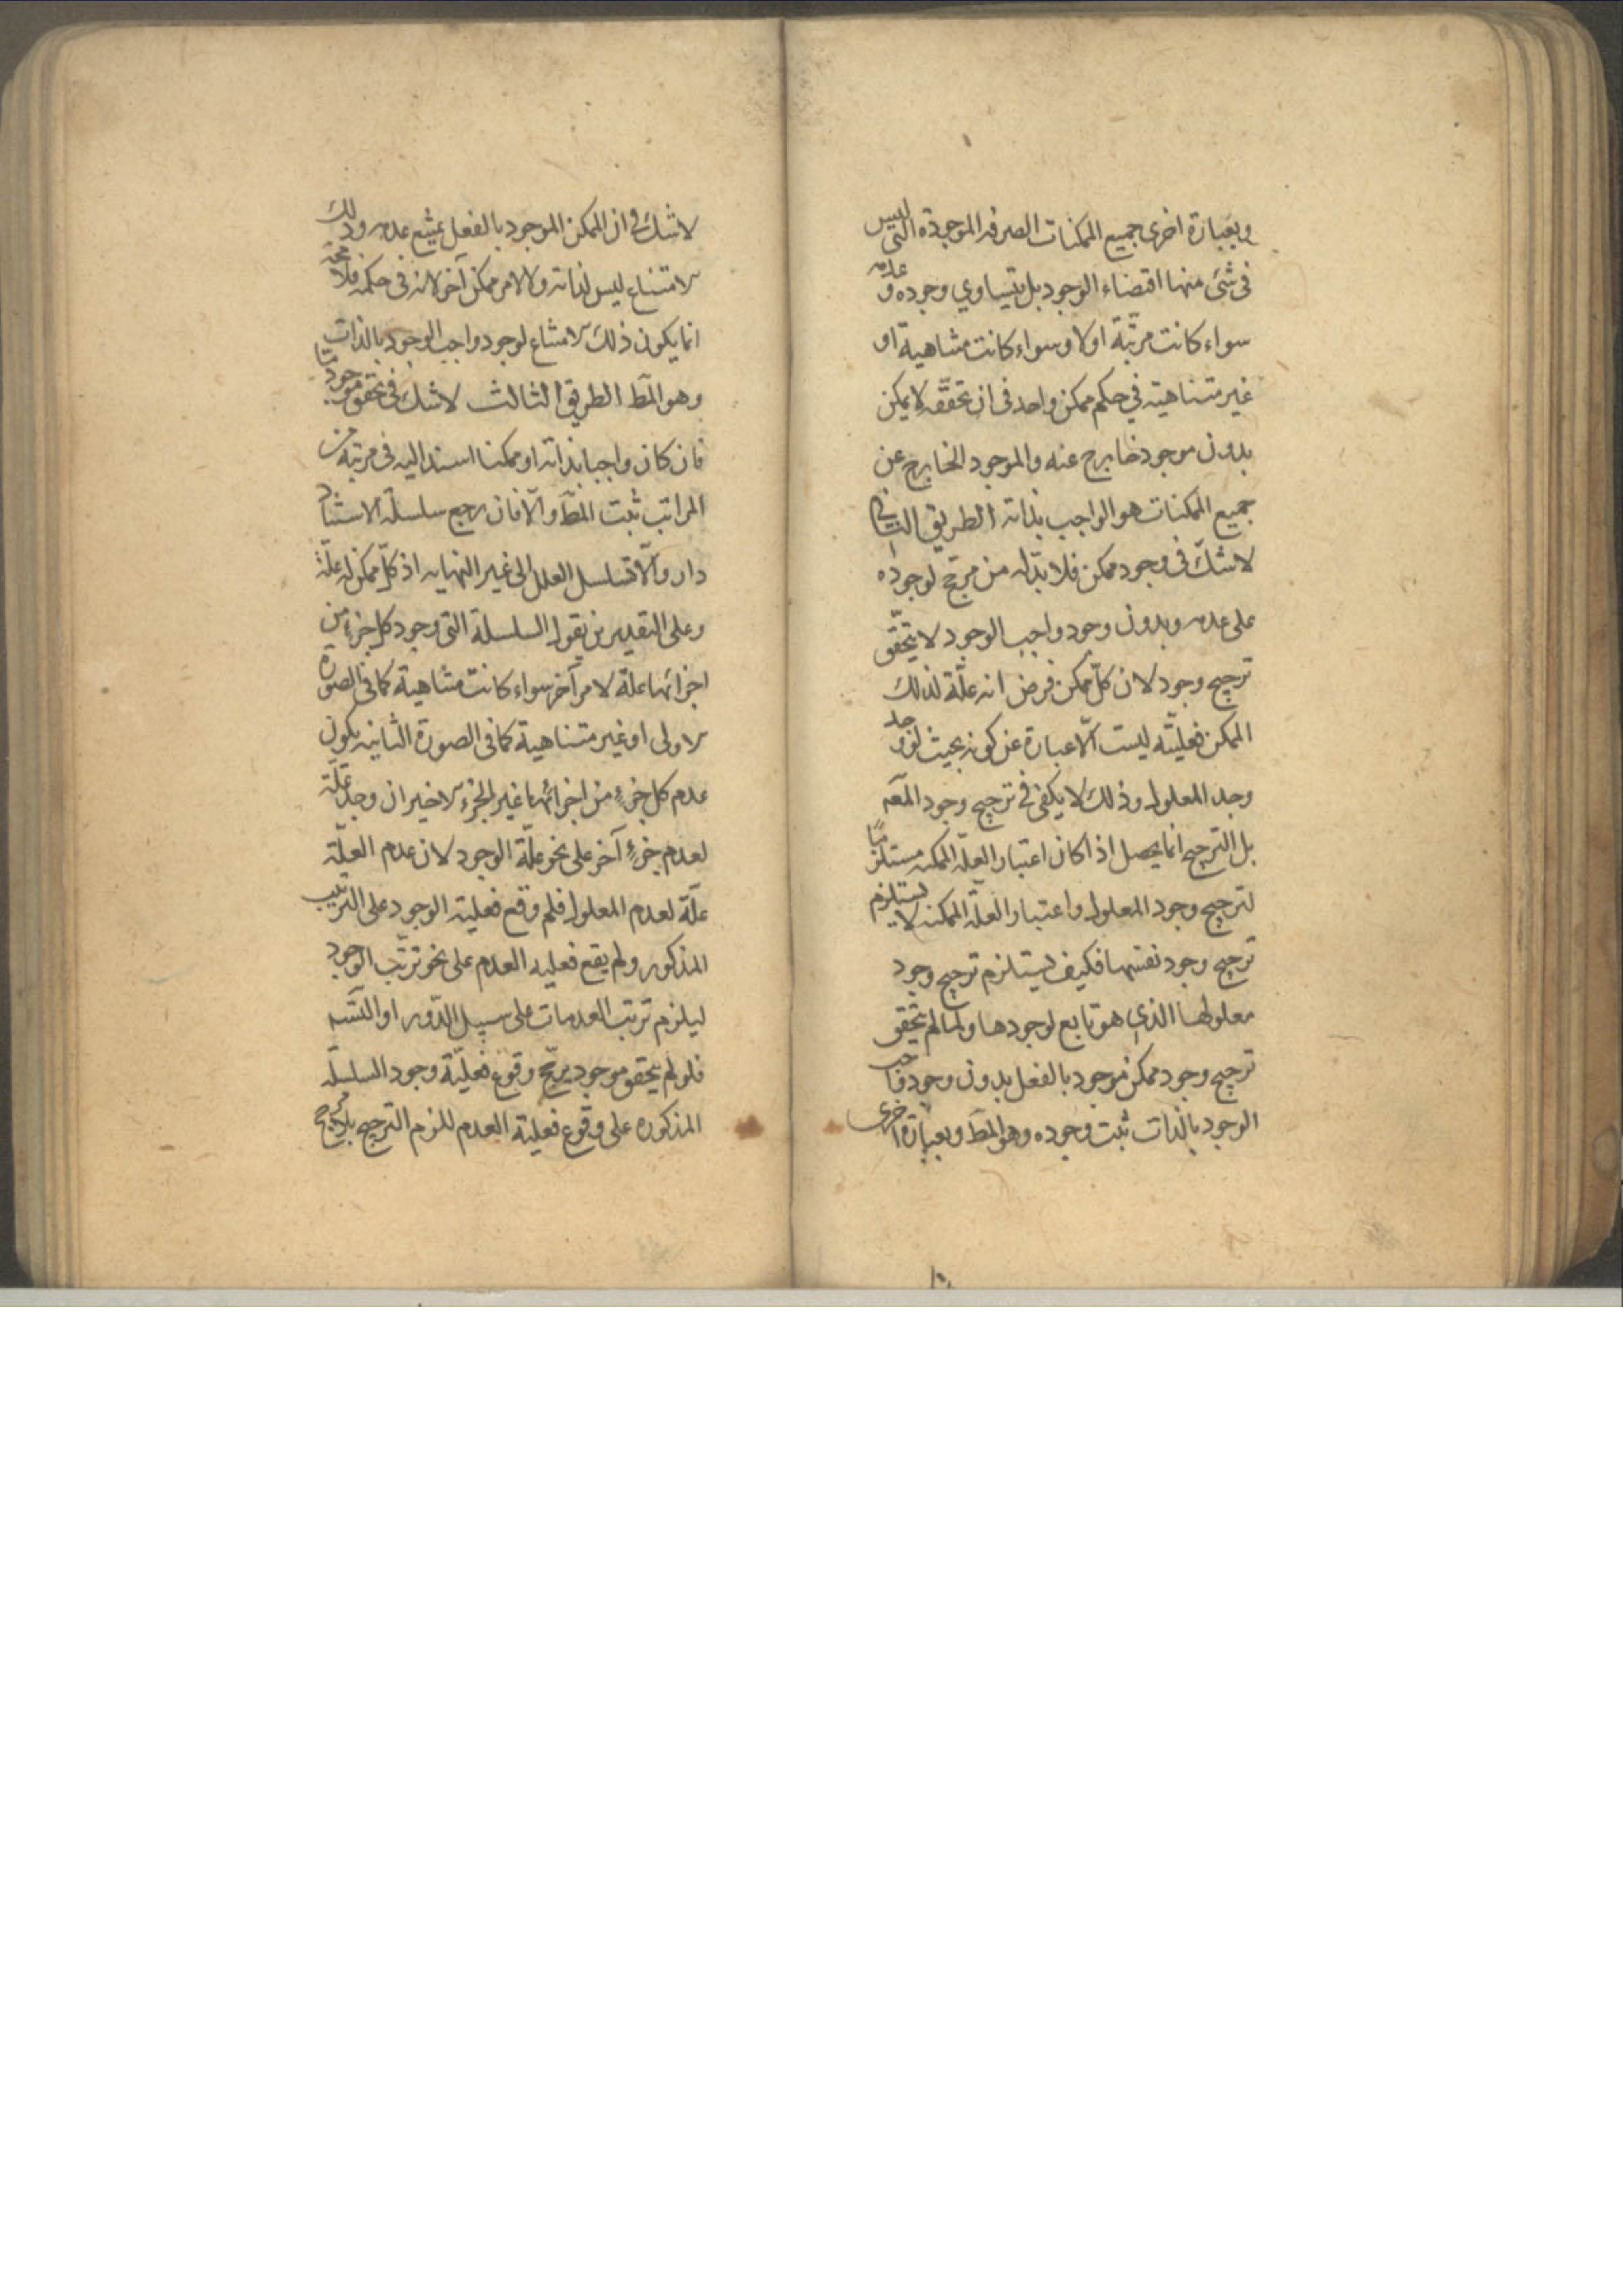 وبعبارة اخرى جميع الممكنات الصرفه الموجوده التى ليس
فى شئ منها اقتضاء الوجود بل يتساوي وجوده وعدمه
سواء كانت مرتّبة اولا وسواء كانت متناهية او
غير متناهيته في حكم ممكن واحد فى ان تحققه لا يمكن
بدون موجود خارج عنه والموجود الخارج عن
جميع الممكنات هو الواجب بذاته الطريق الثانى
لا شكّ فى وجود ممكن فلا بدّ له من مرجّح لوجوده
على عدمه وبدون وجود واجب الوجود لا يتحقّق
ترجيح وجود لان كلّ ممكن فرض انه علّة لذلك
الممكن فعليّته ليست الّا عبارة عن كونه بحيث لو وجد
وجد المعلول وذلك لا يكفى فى ترجيح وجود المعه
بل الترجيح انما يحصل اذا كان اعتبار العلّة الممكنه مستلزمًا
لترجيح وجود المعلول واعتبار العلّة الممكنه لا يستلزم
ترجيح وجود نفسها فكيف يستلزم ترجيح وجود
معلولها الذي هو تابع لوجودها ولما لم يتحقق
ترجيح وجود ممكن موجود بالفعل بدون وجود واجب
الوجود بالذات ثبت وجوده وهو المط وبعبارة اخرى
لا شك فى ان الممكن الموجود بالفعل يمتنع عدمه وذلك
الامتناع ليس لذاته ولا لامر ممكن آخر لانه فى حكمه فلا محة
انما يكون ذلك الامتناع لوجود واجب الوجود بالذات
وهو المط الطريق الثالث لا شك فى تحقق موجود ما
فان كان واجبا بذاته او ممكنا استند اليه فى مرتبة من
المراتب ثبت المط والّا فان رجع سلسلة الاستناد
دار والّا تسلسل العلل الى غير النهايه اذ كلّ ممكن له علّة
وعلى التقديرين نقول السلسلة التى وجود كل جزء من
اجزائها علة لامر آخر سواء كانت متناهية كما فى الصورة
الاولى او غير متناهية كما فى الصورة الثانيه يكون
عدم كل جزء من اجزائها غير الجزء الاخير ان وجد علّة
لعدم جزء آخر على نحو علّة الوجود لان عدم العلّة
علّة لعدم المعلول فلم وقع فعلية الوجود على الترتيب
المذكور ولم يقع فعليه العدم على نحو ترتّب الوجود
ليلزم ترتب العدمات على سبيل الدّور او التسه
فلو لم يتحقق موجود يرجّح وقوع فعليّة وجود السلسله
المذكوره على وقوع فعلية العدم للزم الترجيح بلا مرجح